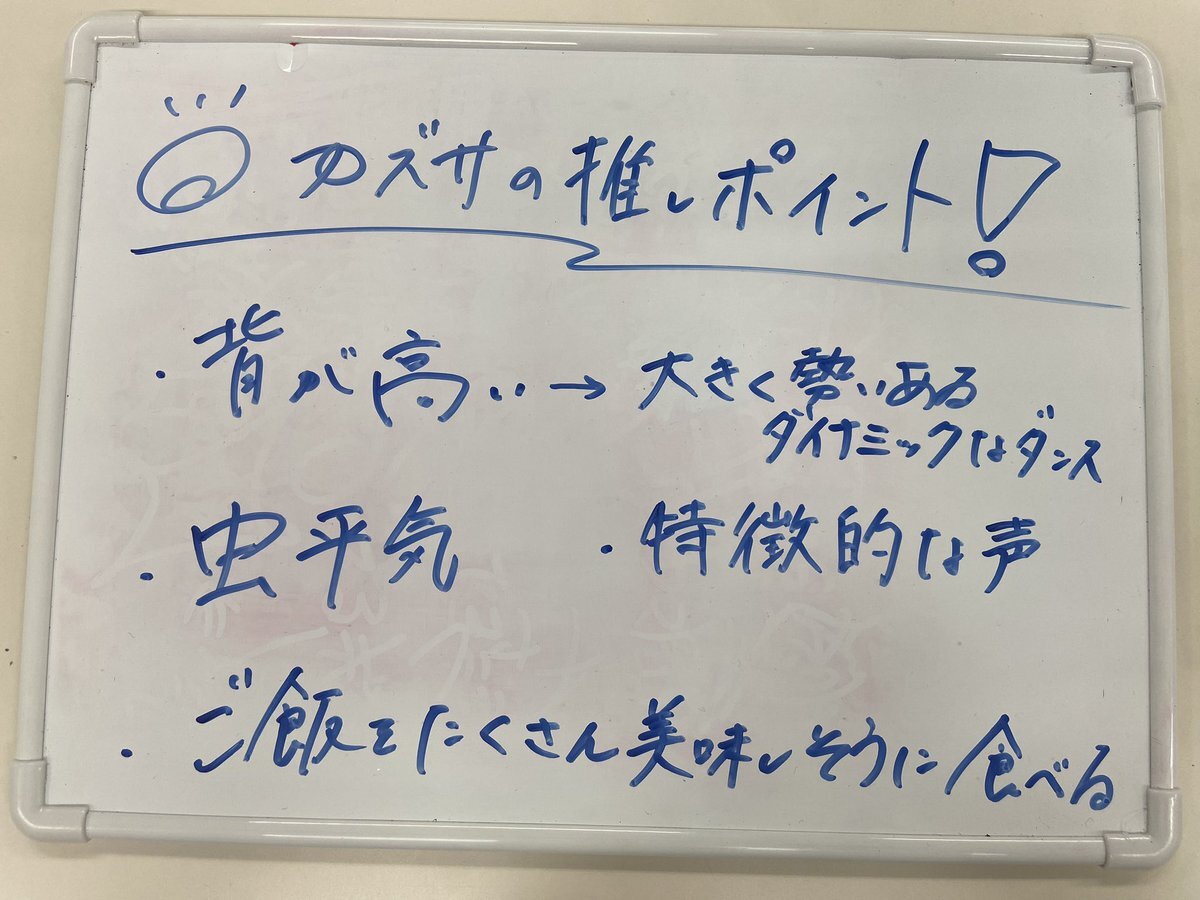 カズサの推しポイント!
・背が高い→大きく勢いある
ダイナミックなダンス
・虫平気 ・特徴的な声
・ご飯をたくさん美味しそうに食べる